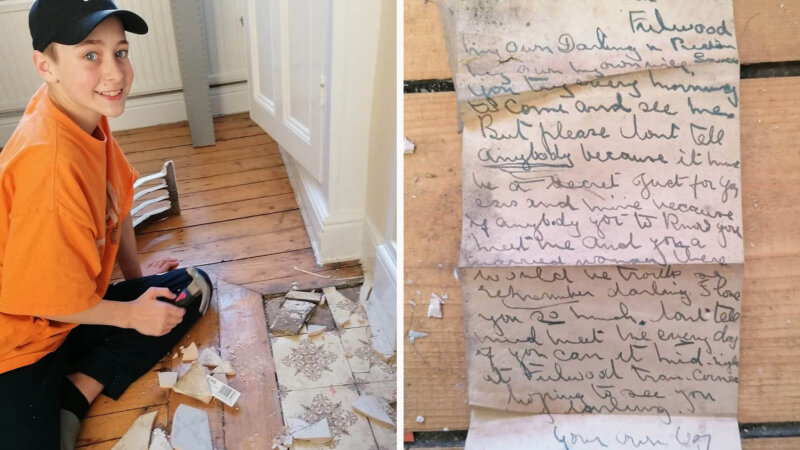 Fulwood
My own Darling
you try every morning
to come and see me
But please dont tell
anybody because it must
be a secret Just for you
ears and mine because
if anybody got to know you
meet me and you a
married woman there
would be trouble
remember darling I love
you so much. dont tell
and meet me every day
if you can it mid-night
at Fulwood Tram-Corner
hoping to see you
darling.
Your own